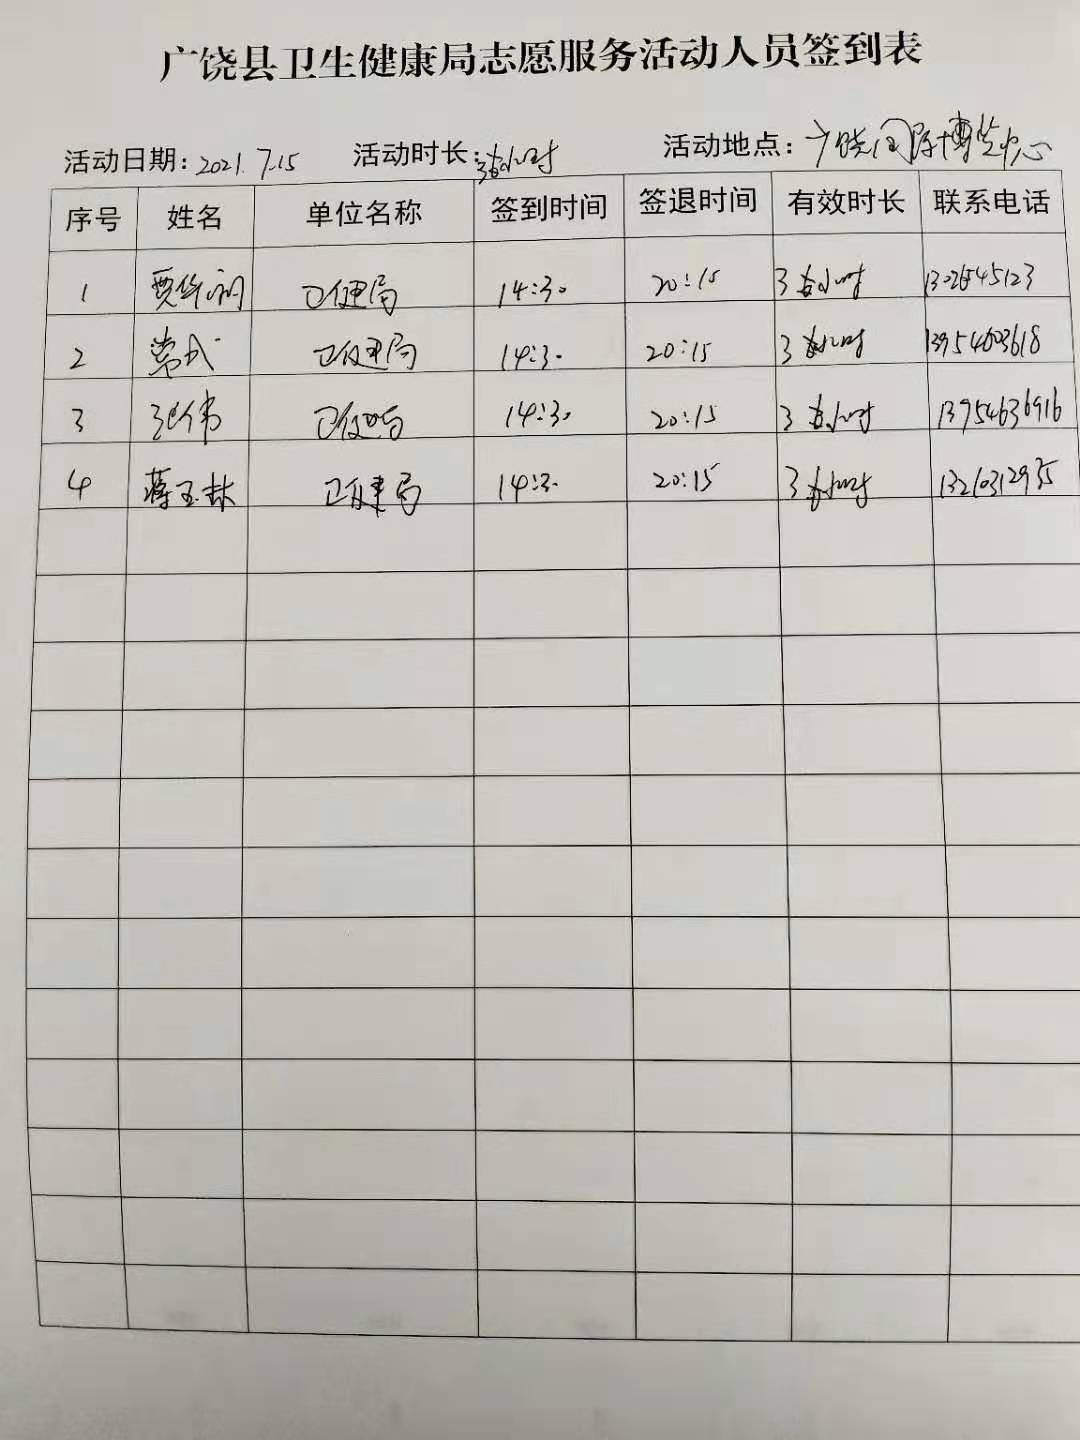 广饶县卫生健康局志愿服务活动人员签到表
活动日期：2021.7.15 活动时长：3个小时 活动地点：广饶国际博览中心
序号 姓名 单位名称 签到时间 签退时间 有效时长 联系电话
1 卫健局 14:30 20:15 3个小时
2 常成 卫健局 14:30 20:15 3个小时 13954603618
3 张伟 卫健局 14:30 20:15 3个小时 13954636916
4 蒋玉林 卫健局 14:30 20:15 3个小时